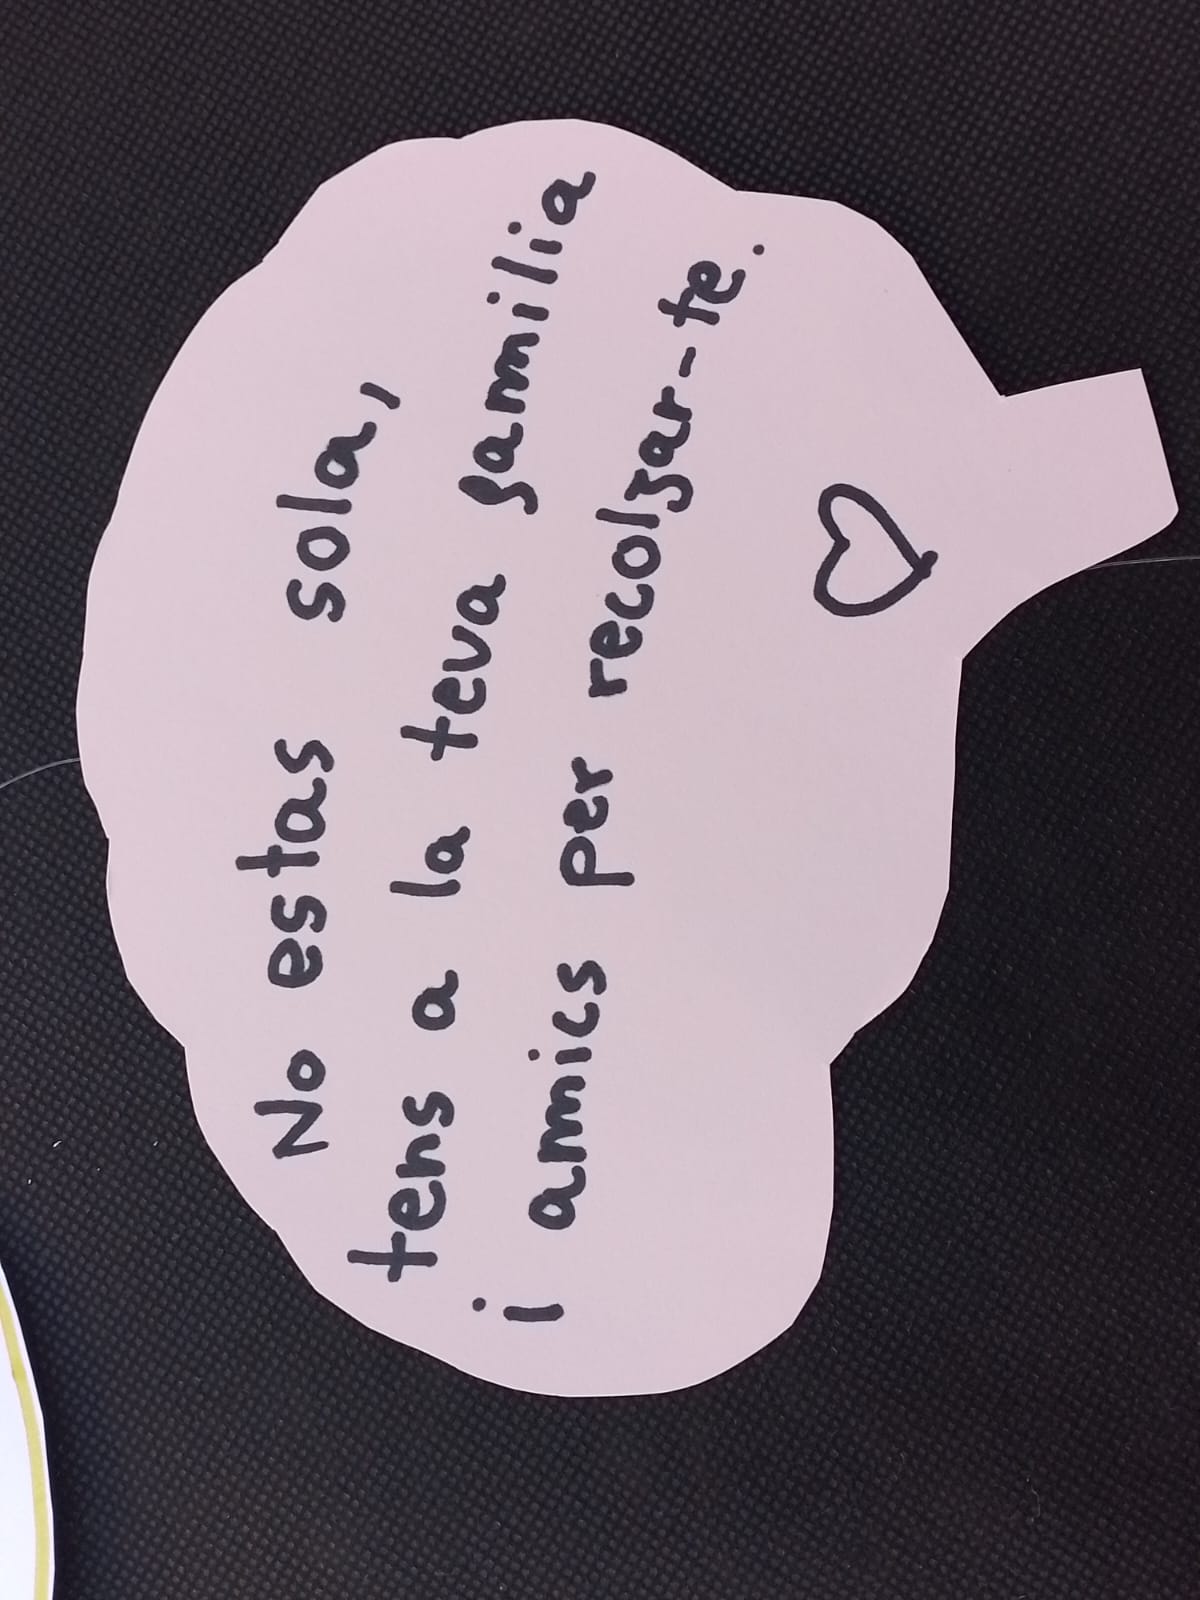 No estas sola,
tens a la teva familia
i amics per recolzar-te.